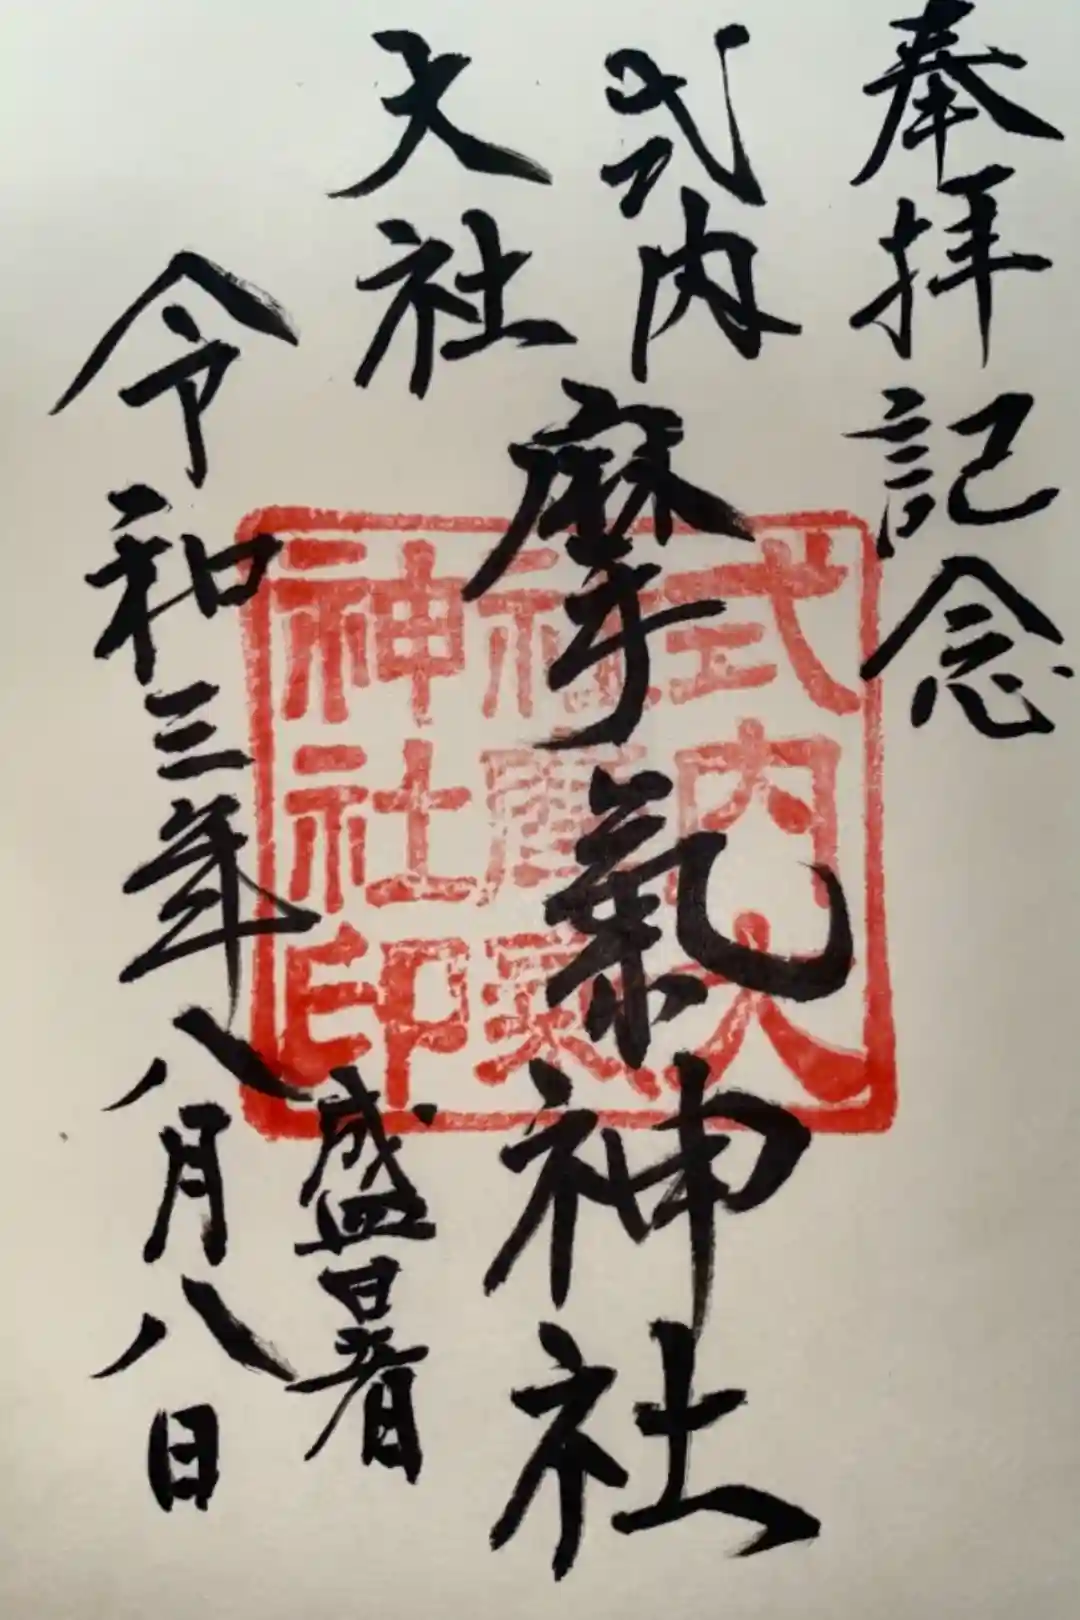 奉拝記念
式内
大社
摩氣神社
盛暑
令和三年八月八日
式内大
社摩氣
神社印